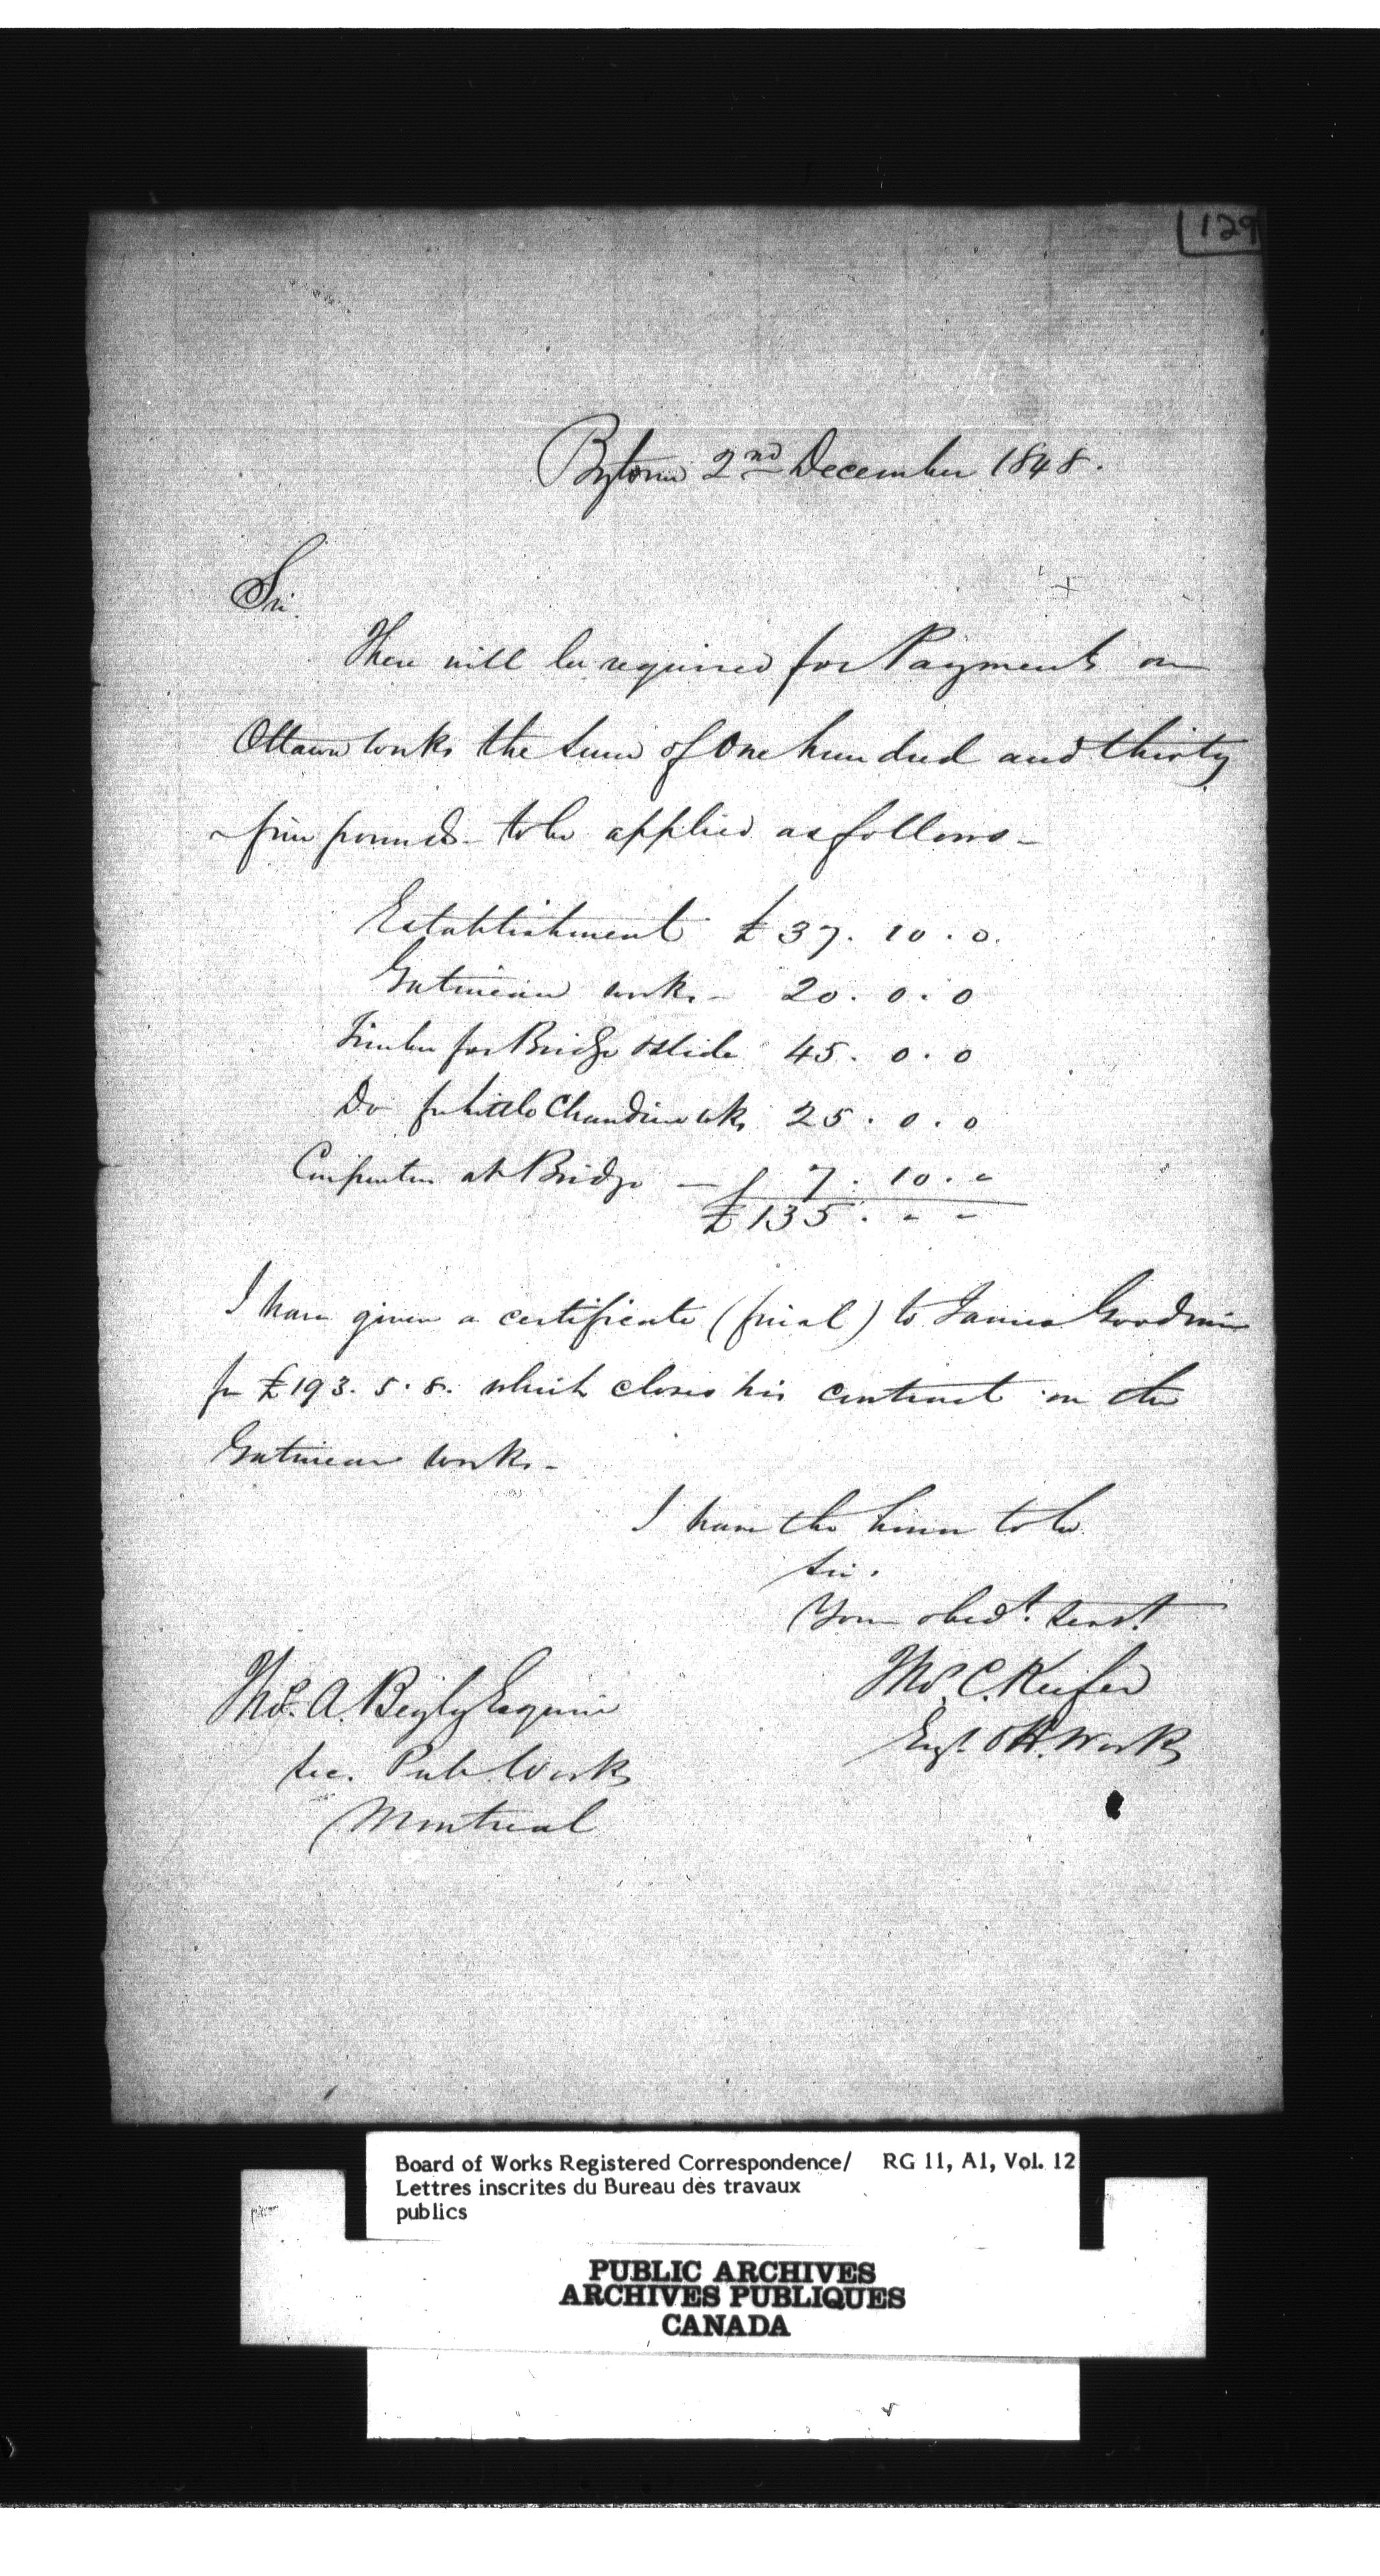 129
Bytown 2nd December 1848.
Sir.
There will be required for Payments on
Ottawa works the sum of One hundred and thirty
five pounds - to be applied as follows -
Establishment £ 37. 10. 0.
Gatineau works - 20. 0. 0
Timber for Bridge & Slide 45. 0. 0
Do for Little Chaudiere wks 25. 0. 0
Carpenter at Bridge - £ 7. 10. -
£ 135. - -
I have given a certificate (final) to James Goodwin
for £193. 5. 8. which closes his contract on the
Gatineau works -
I have the honor to be
Sir.
Your obedt. servt.
Thos. C. Keefer
Engr. Ott. Works
Thos. A. Begly Esquire
Sec. Pub. Works
Montreal
Board of Works Registered Correspondence/ RG 11, A1, Vol. 12
Lettres inscrites du Bureau des travaux
publics
PUBLIC ARCHIVES
ARCHIVES PUBLIQUES
CANADA